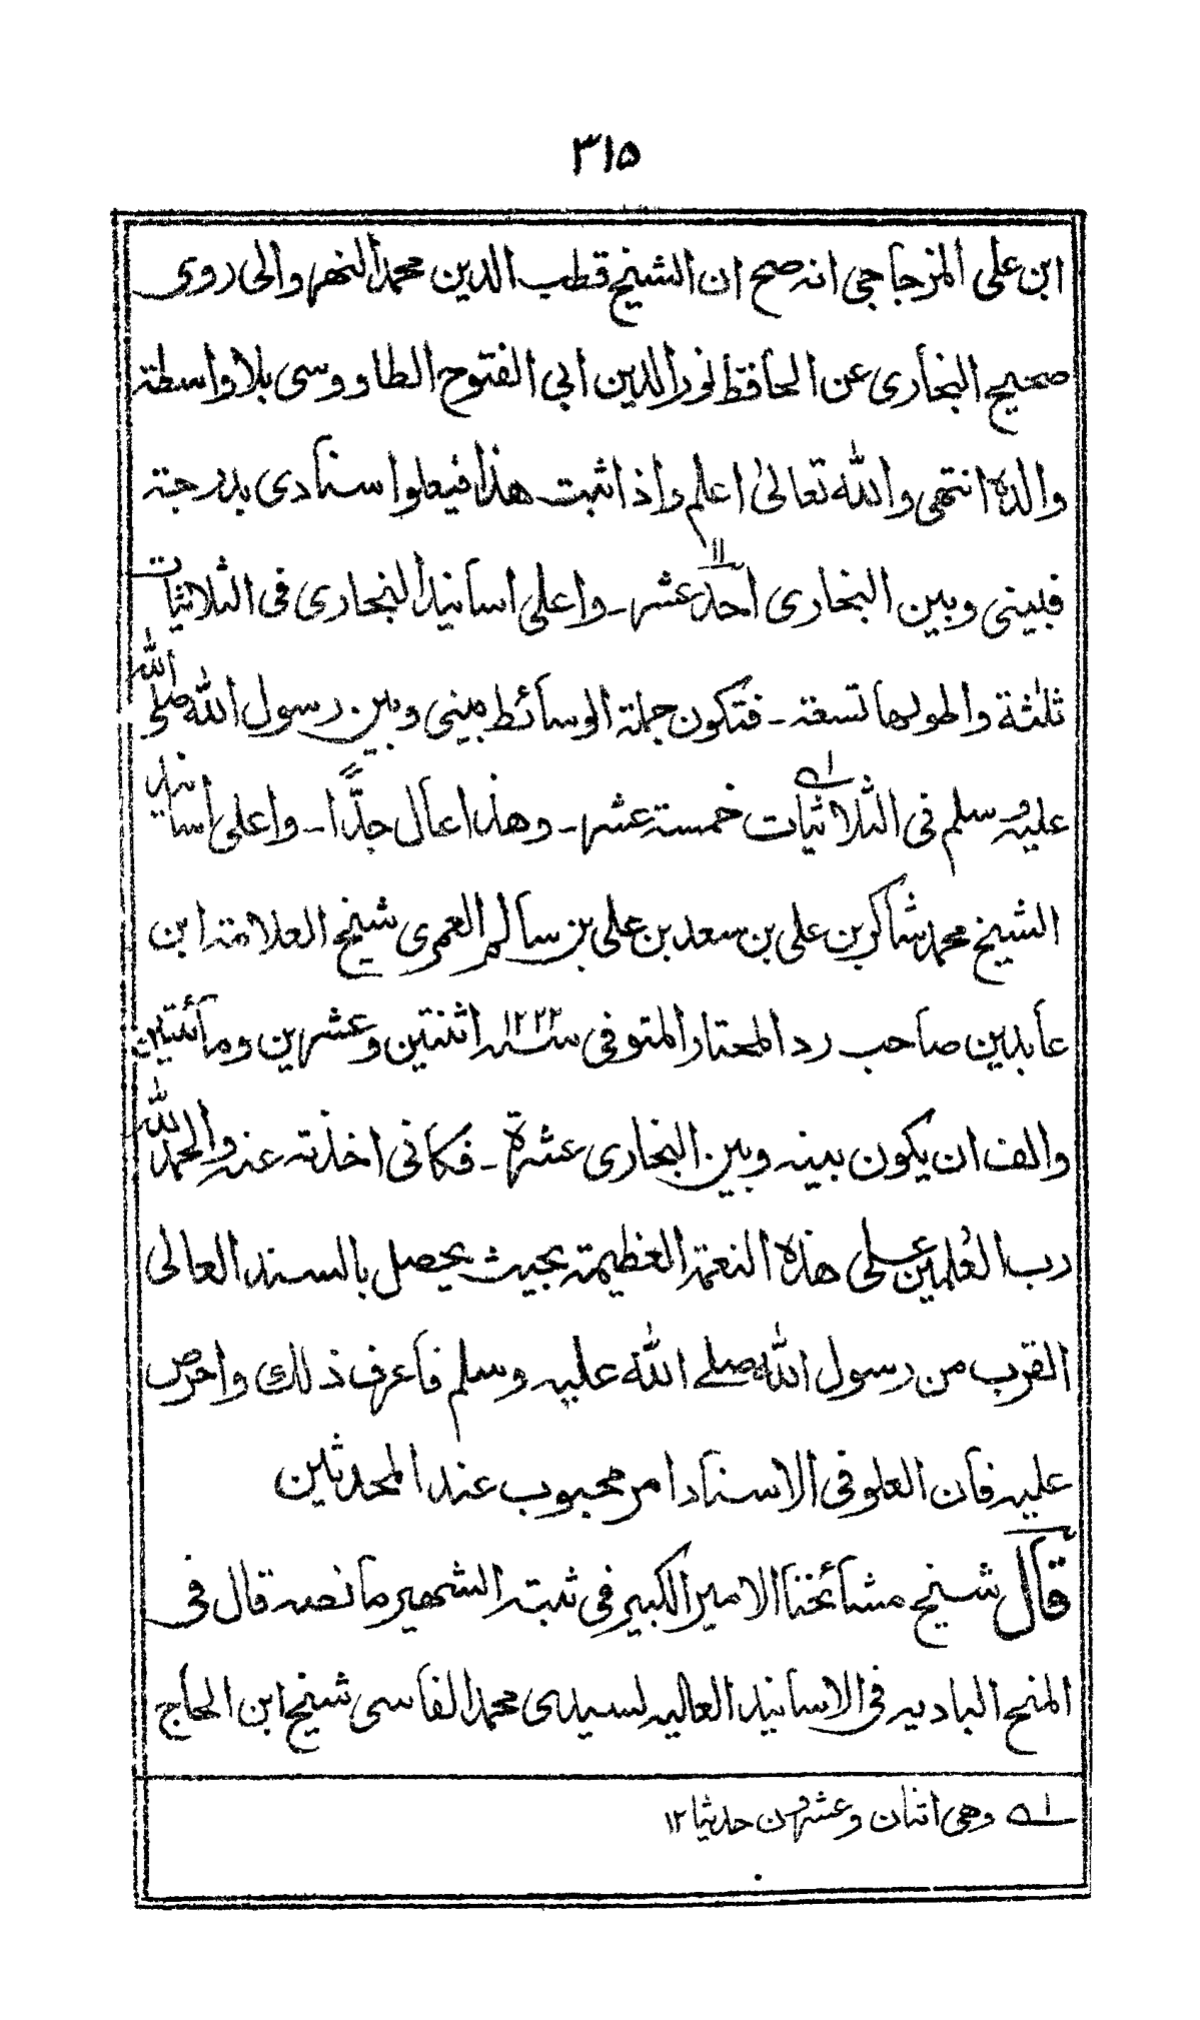 ٣١٥
ابن على المزجاجى انہ صح ان الشیخ قطب الدین محمد النھروالى روى
صحیح البخارى عن الحافظ نور الدین ابى الفتوح الطاووسى بلا واسطۃ
والدہ انتھى واللّٰہ تعالىٰ اعلم واذا ثبت ھذا فیعلوا سنادى بدرجۃ
فبینى وبین البخارى احد ۱۱ عشر ۔ واعلى اسانید البخارى فى الثلاثیات
ثلٰثۃ واطولھا تسعۃ ۔ فتکون جملۃ الوسائط بینى وبین رسول اللّٰہ صلى اللّٰہ
علیہ وسلم فى الثلاثیات ؂۱ خمسۃ عشر ۔ وھذا عال جدًّا ۔ واعلى اسانید
الشیخ محمد شاکر بن على بن سعد بن على بن سالم العمرى شیخ العلامۃ ابن
عابدین صاحب رد المحتار المتوفى سنۃ ۱۲۲۲ اثنتین وعشرین ومائتین
والف ان یکون بینہ وبین البخارى عشرۃ ۔ فکانى اخذتہ عنہ والحمد للّٰہ
رب العٰلمین على ھذہ النعمۃ العظیمۃ بحیث یحصل بالسند العالى
القرب من رسول اللّٰہ صلے اللّٰہ علیہ وسلم فاعرف ذلك واحرص
علیہ فان العلو فى الاسناد امر محبوب عند المحدثین
قال شیخ مشائخنا الامیر الکبیر فى ثبتہ الشھیر ما نصہ قال فى
المنح البادیہ فى الاسانید العالیہ لسیدى محمد الفاسى شیخ ابن الحاج
؂۱ وھى اثنان وعشرون حدیثا ۱۲